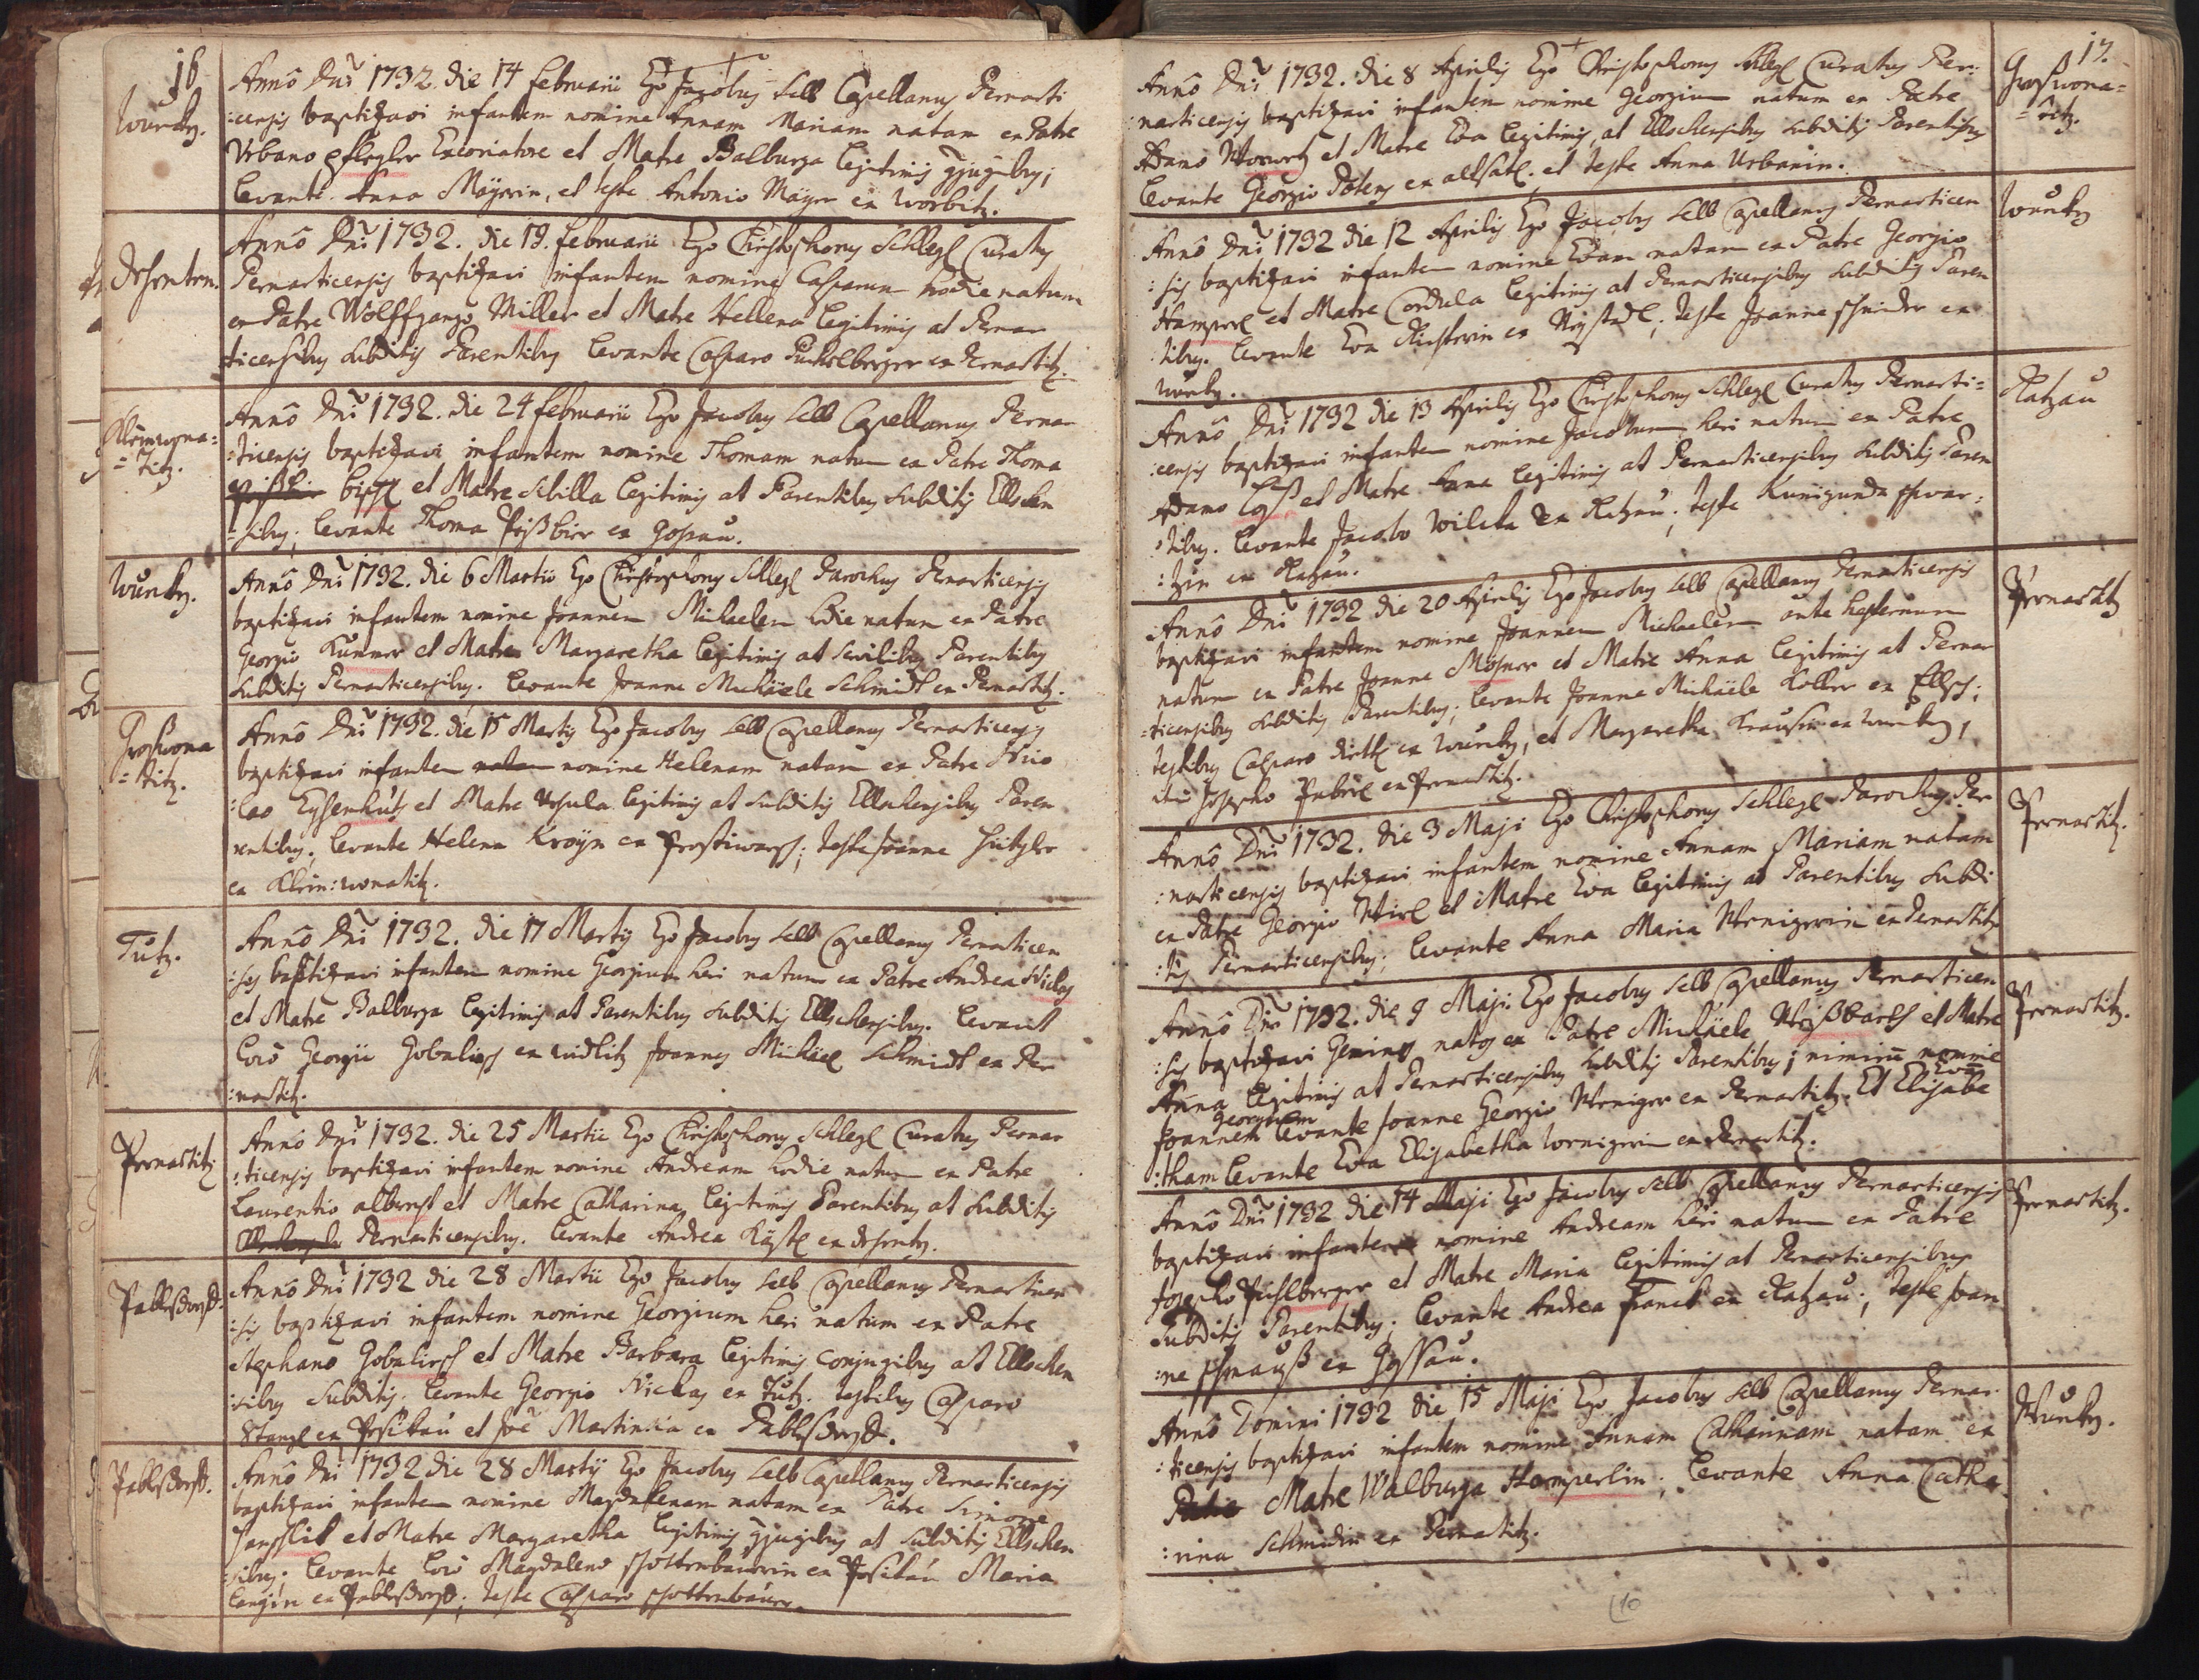 16
Wurkn.
Annô Dnî 1732. die 14 februarii Ego Jacobus Selb Capellanus Pernarti
:censis baptizavi infantem nomine Annam Mariam natam ex Patre
Urbano Pflegler Excoriatore et Matre Balburga legitimis conjugibus;
levante Anna Mayrin, et teste Antonio Mayr ex Worbitz.
Annô Dnî 1732. die 19. februarii Ego Christophorus Schlegl Curatus
Pernarticensis baptizavi infantem nomine Casparum hodie natum
ex Patre Wolffgango Miller et Matre Hellena legitimis at Pernar
ticensibus subditis Parentibus levante Casparo Puchelberger ex Pernartitz.
Kleinwona=
=titz.
Annô Dnî 1732. die 24 februarii Ego Jacobus Selb Capellanus Pernar
:ticensis baptizavi infantem nomine Thomam natum ex Patre Thoma
et Matre Sibilla legitimis at Parentibus subditis Ellschen
=sibus; levante Thoma Pißbier ex Goßau.
Wurkn.
Annô Dnî 1732. die 6 Martii Ego Christophorus Schlegl Parochus Pernarticensis
baptizavi infantem nomine Joannem Michaelem hodie natum ex Patre
Georgio Kummer et Matre Margaretha legitimis at Parentibus
subditis Pernarticensibus. levante Joanne Michäele Schmidt ex Pernartitz.
Großwona
=titz.
Annô Dnî 1732. die 15 Martij Ego Jacobus Selb Capellanus Pernarticensis
baptizavi infantem nomine Helenam natam ex Patre Nico
:lao Eysenhut et Matre Ursula legitimis at subditis Ellschensibus Paren
rentibus; levante Helena ex Prostiwarsch; teste Joanne
ex Klein:wonatitz.
Tütz.
Annô Dnî 1732. die 17 Martij Ego Jacobus Selb Capellanus Pernarticen
:sis baptizavi infantem nomine Georgium heri natum ex Patre Andrea Niclas
et Matre Balburga legitimis at Parentibus subditis Ellschensibus. levant
locô Georgii Gobalirsch ex Joannes Michäel Schmidt ex Per
:nartitz.
Pernartitz
Annô Dnî 1732. die 25 Martii Ego Christophorus Schlegl Curatus Pernar
:ticensis baptizavi infantem nomine Andream hodie natum ex Patre
Laurentio et Matre Catharina legitimis Parentibus at subditis
Pernarticensibus. levante Andrea
Pablsdorff.
Annô Dnî 1732 die 28 Martii Ego Jacobus Selb Capellanus Pernarticen
:sis baptizavi infantem nomine Georgium heri natum ex Patre
Stephano Gobalirsch et Matre Barbara legitimis conjugibus at Ellschen
:sibus subditis. levante Georgio Nickas ex Tütz. testibus Casparo
Stangl ex et Joê Martin ex Pablsdorff.
Pablsdorff.
Annô Dnî 1732 die 28 Martij Ego Jacobus Selb Capellanus Pernarticensis
baptizavi infantem nomine Magdalenam natam ex Patre Simone
et Matre Margaretha legitimis conjugibus at subditis Ellschen
sibus. levante locô Magdalenâ Schottenbaurin ex Maria
Langin ex Pablsdorff; teste Casparo Schottenbaurr.
17.
Großwona=
=titz.
Annô Dnî 1732. die 8 Aprilis Ego Christophorus Schlegl Curatus Per:
narticensis baptizavi infantem nomine Georgium natum ex Patre
Adamo et Matre Eva legitimis, at Ellschensibus subditis Parentibus
levante Georgio ex altsatl. et teste Anna Urbanin.
Wurkn
Annô Dnî 1732 die 12 Aprilis Ego Jacobus Selb Capellanus Pernarticen
:sis baptizavi infantem nomine Evam natam ex Patre Georgio
Hamperl et Matre Cordula legitimis at Pernarticensibus subditis Paren
:tibus. levante Eva Richterin ex Neystadl; teste Joanne Schnider ex
Wurkn.
Ratzau
Annô Dnî 1732 die 13 Aprilis Ego Christophorus Schlegl Curatus Pernarti=
:censis baptizavi infantem nomine Jacobum heri natum ex Patre
Adamo et Matre Anna legitimis at Pernarticensibus subditis Paren
:tibus. levante Jacobo ex Ratzau; teste Kunigunda Schwar:
:tzin ex Ratzau.
Pernartitz
Annô Dnî 1732 die 20 Aprilis Ego Jacobus Selb Capellanus Pernarticensis
baptizavi infantem nomine Joannem Michaelem ante hesternum
natum ex Patre Joanne et Matre Anna legitimis at Pernar
=ticensibus subditis Parentibus; levante Joanne Michäele Koller ex Ellsch;
testibus Casparo ex Wurkn, et Margaretha Krausin ex Wurkn,
Josepho ex Pernartitz.
Pernartitz.
Annô Dnî 1732. die 3 Maji Ego Christophorus Schlegl Parochus Per
:narticensis baptizavi infantem nomine Annam Mariam natam
ex Patre Georgio et Matre Eva legitimis at Parentibus subdi
:tis Pernarticensibus; levante Anna Maria Wenigerin ex Pernartitz
Pernartitz.
Annô Dnî 1732. die 9 Maji Ego Jacobus Selb Capellanus Pernarticen
:sis baptizavi Geminos natos ex Patre Michäele Weißbarth et Matre
Anna legitimis at Pernarticensibus subditis Parentibus; nimirū nomine
Joannem Georgium levante Joanne Georgio Weniger ex Pernartitz. Et Evam Elisabe
:tham levante Eva Elisabetha Wenigerin ex Pernartitz.
Pernartitz.
Annô Dnî 1732 die 14 Maji Ego Jacobus Selb Capellanus Pernarticensis
baptizavi infantem nomine Andream heri natum ex Patre
Josepho Puchlberger et Matre Maria legitimis at Pernarticensibus
subditis Parentibus; levante Andrea Franck ex Ratzau; teste Joan
:ne ex Goßau.
Wurkn.
Annô Domini 1732 die 15 Maji Ego Jacobus Selb Capellanus Pernar
:ticensis baptizavi infantem nomine Annam Catharinam natam ex
Patre Matre Walburga Hamperlin; levante Anna Catha
:rina Schmidin ex Pernartitz.
10